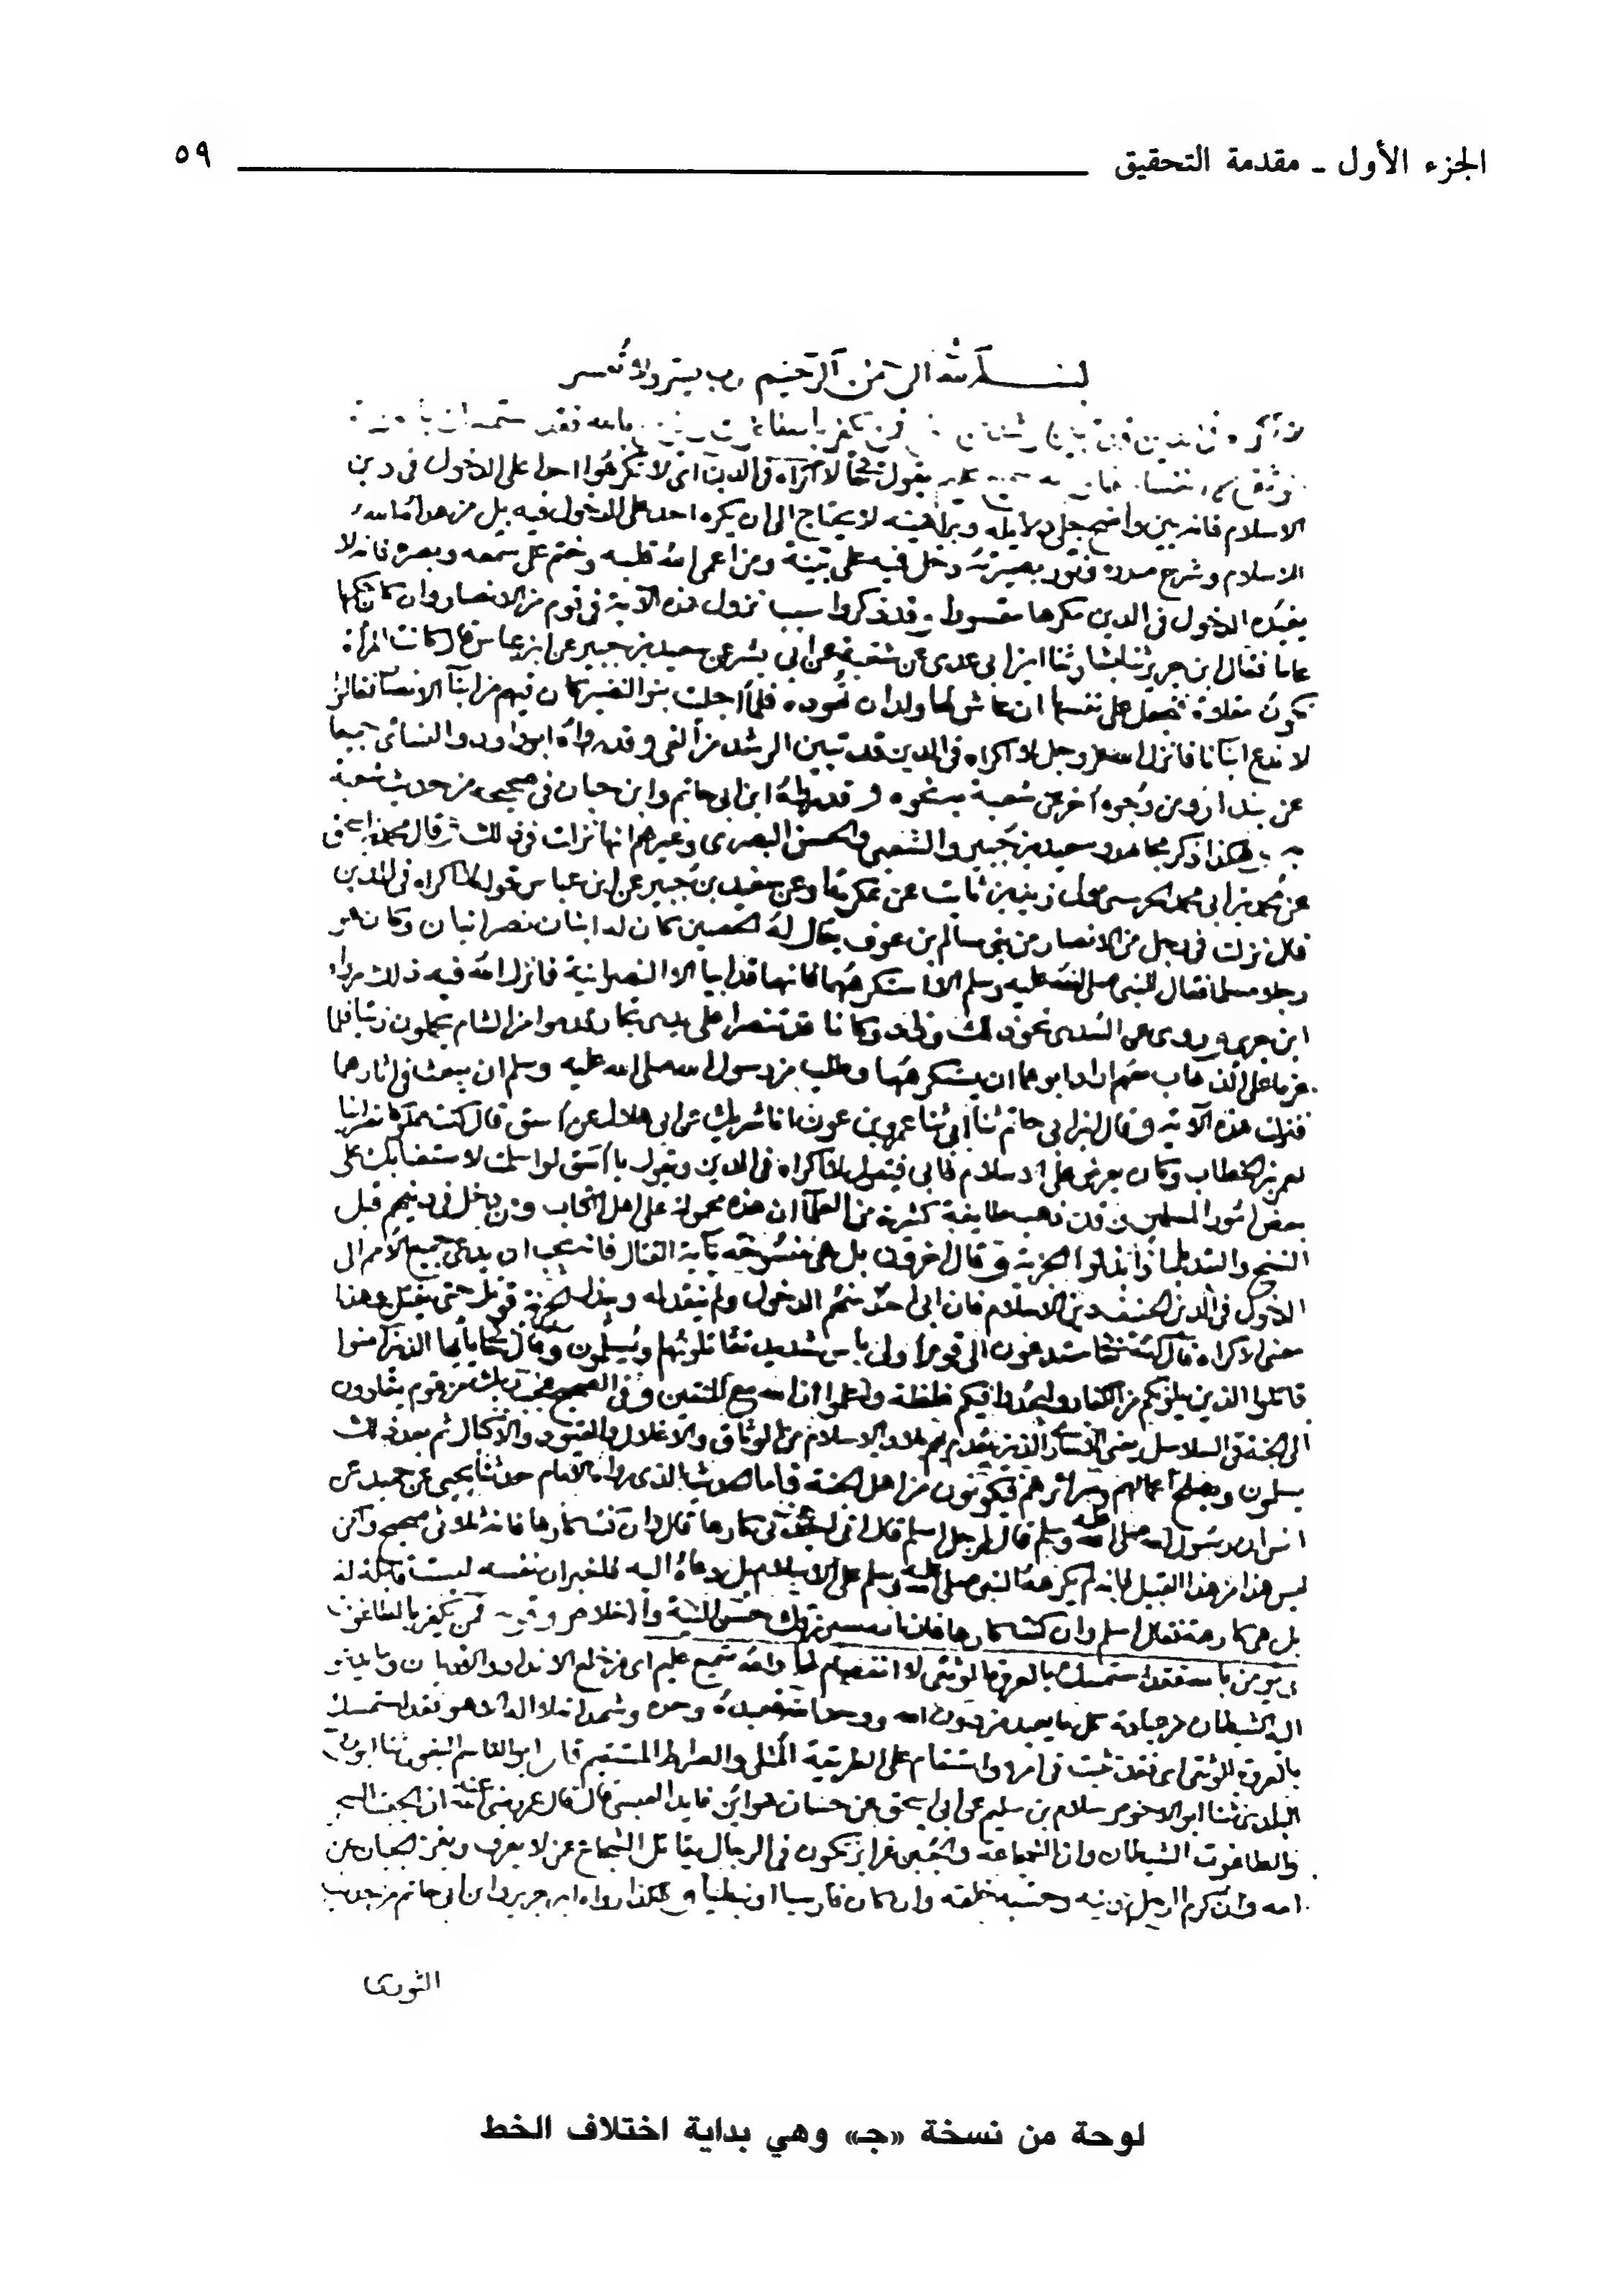 الجزء الأول ـ مقدمة التحقيق ٥٩
بسم الله الرحمن الرحيم رب يسر ولا تعسر
لا اكراه في الدين قد تبين الرشد من فمن يكفر بالطاغوت ويؤمن بالله فقد استمسك
يقول تعالى لا اكراه في الدين اى لا تكرهوا احدا على الدخول في دين
الاسلام فانه بين واضح جلى دلايله وبراهينه لا يحتاج الى ان يكره احد على الدخول فيه بل من هداه الله
الاسلام وشرح صدره ونور بصيرته دخل فيه على بينة ومن اعمى الله قلبه وختم على سمعه وبصره فانه لا
يفيده الدخول في الدين مكرها مقسورا وقد ذكروا سبب نزول هذه الآية في قوم من الانصار وان كان حكمها
عاما فقال ابن جرير ثنا ابن بشار ثنا ابن ابي عدى عن شعبة عن ابي بشر عن سعيد بن جبير عن ابن عباس قال كانت المرأة
تكون مقلاة فتجعل على نفسها ان عاش لها ولد ان تهوده فلما اجليت بنو النضير كان فيهم من ابنآ الانصار فقالوا
لا ندع ابنآنا فانزل الله عز وجل لا اكراه في الدين قد تبين الرشد من الغي وقد رواه ابو داود والنسائى جميعا
عن بندار ومن وجوه أخر عن شعبة به نحوه وقد رواه ابن ابي حاتم وابن حبان في صحيحه من حديث شعبة
به وهكذا ذكر مجاهد وسعيد بن جبير والشعبي والحسن البصرى وغيرهم انها نزلت في ذلك وقال محمد بن اسحق
عن محمد بن ابي محمد الحرسي مولى زيد بن ثابت عن عكرمة او عن سعيد بن جبير عن ابن عباس قوله لا اكراه في الدين
قال نزلت في رجل من الانصار من بني سالم بن عوف يقال له الحصين كان له ابنان نصرانيان وكان هو
رجلا مسلما فقال للنبي صلى الله عليه وسلم الا استكرههما فانهما قد ابيا الا النصرانية فانزل الله فيه ذلك رواه
ابن جرير وروى عن السدى نحو ذلك وزاد وكانا قد تنصرا على يدى تجار قدموا من الشام يحملون زيتا فلما
عزما على الذهاب معهم اراد ابوهما ان يستكرههما وطلب من رسول الله صلى الله عليه وسلم ان يبعث في اثارهما
فنزلت هذه الآية وقال ابن ابي حاتم ثنا أبي ثنا عمرو بن عون انا شريك عن ابي هلال عن اسق قال كنت مملوكا نصرانيا
لعمر بن الخطاب وكان يعرض على الاسلام فآبى فيقول لا اكراه في الدين ويقول يا اسق لو اسلمت لاستعنا بك على
بعض امور المسلمين وقد ذهب طايفة كثيرة من العلمآ ان هذه محمولة على اهل الكتاب ومن دخل في دينهم قبل
النسخ والتبديل اذا بذلوا الجزية وقال اخرون بل هي منسوخة بآية القتال فانه يجب ان يدعى جميع الأمم الى
الدخول في الدين الحنيف دين الاسلام فان ابى احد منهم الدخول ولم ينقد له ويبذل الجزية قوتل حتى يقتل وهذا
معنى الاكراه قال الله تعالى ستدعون الى قوم اولى باس شديد تقاتلونهم او يسلمون وقال تعالى يا ايها الذين آمنوا
قاتلوا الذين يلونكم من الكفار وليجدوا فيكم غلظة واعلموا ان الله مع المتقين وفي الصحيح عجب ربك من قوم يقادون
الى الجنة في السلاسل يعني الأسارى الذين يقدم بهم بلاد الاسلام في الوثاق والاغلال والقيود والاكبال ثم بعد ذلك
يسلمون وتصلح اعمالهم وسرائرهم فيكونون من اهل الجنة فاما الحديث الذى رواه الامام حدثنا يحيى عن حميد عن
انس ان رسول الله صلى الله عليه وسلم قال لرجل اسلم قال اني اجدني كارها قال وان كنت كارها فانه ثلاثي صحيح ولكن
ليس هذا من هذا القبيل فانه لم يكرهه النبي صلى الله عليه وسلم على الاسلام بل دعاه اليه فاخبر ان نفسه ليست قابلة له
بل هي كارهة فقال اسلم وان كنت كارها فان الله سيرزقك حسن النية والاخلاص وقوله فمن يكفر بالطاغوت
ويومن بالله فقد استمسك بالعروة الوثقى لا انفصام لها والله سميع عليم اى من خلع الانداد والاوثان وما يدعو
اليه الشيطان من عبادة كل ما يعبد من دون الله ووحد الله فعبده وحده وشهد ان لا اله الا هو فقد استمسك
بالعروة الوثقى اى فقد ثبت في امره واستقام على الطريقة المثلى والصراط المستقيم قال ابو القاسم البغوى ثنا ابو روح
البلدى ثنا ابو الاحوص سلام بن سليم عن ابي اسحق عن حسان هو ابن فايد العبسي قال قال عمر رضي الله عنه ان الجبت السحر
والطاغوت الشيطان وان الشجاعة والجبن غرايز تكون في الرجال يقاتل الشجاع عن لا يعرف ويفر الجبان عن
امه وان كرم الرجل دينه وحسبه خلقه وان كان فارسيا او نبطيا وهكذا رواه ابن جرير وابن ابي حاتم من حديث
الثورى
لوحة من نسخة «جـ» وهي بداية اختلاف الخط